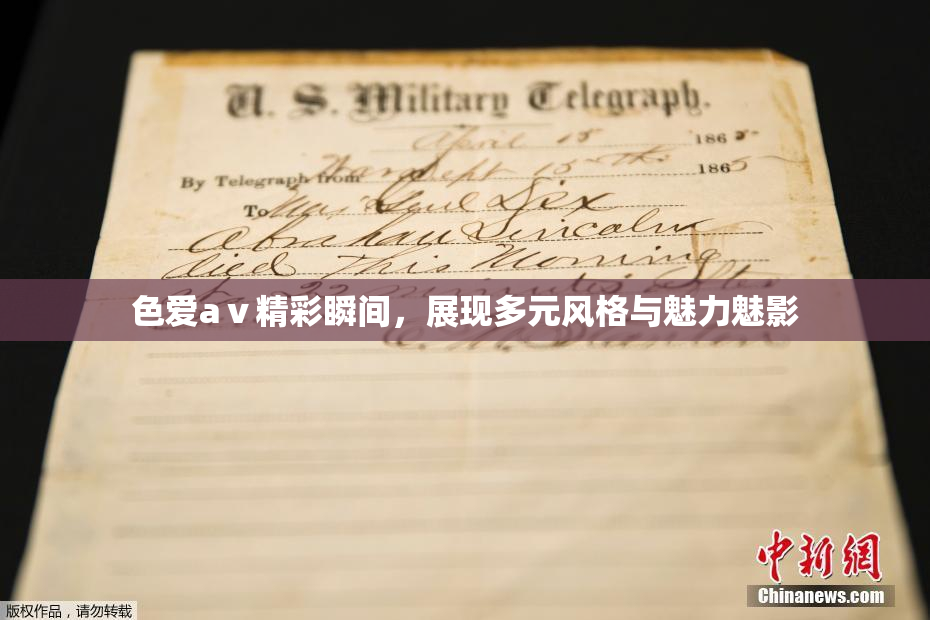 U. S. Military Telegraph.
April 15 1865
By Telegraph from War Dept 15th 1865
To Maj Genl Dix
Abraham Lincoln
died This Morning
at 22 minutes after
色爱aⅴ精彩瞬间，展现多元风格与魅力魅影
E. M. Stanton
中新网
Chinanews.com
版权作品，请勿转载